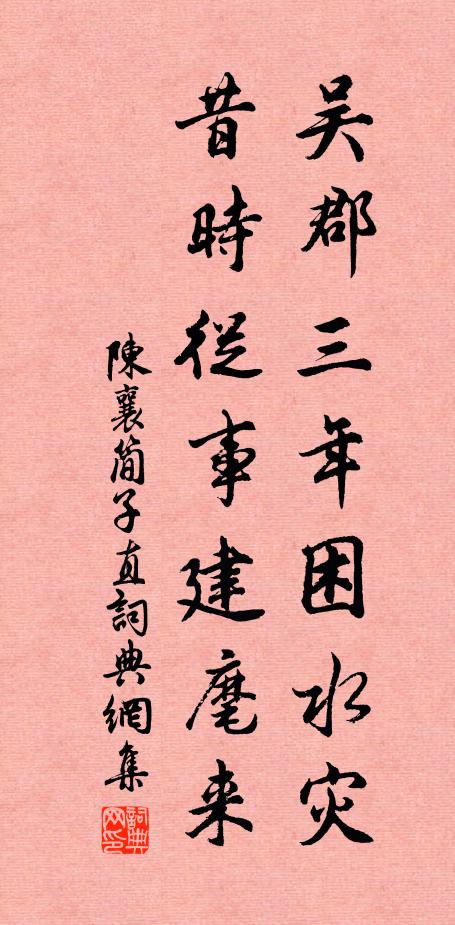 吴郡三年困水灾
昔時從事建麾来
陳襄簡子直詞典網集
詞典网印